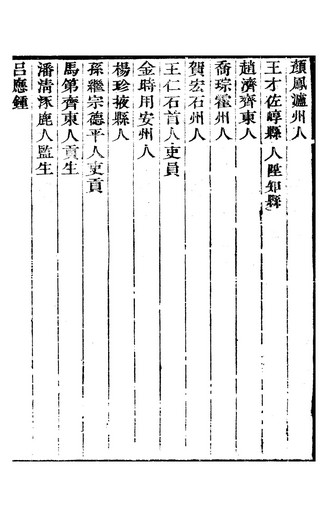 顏鳳瀘州人
王才佐崞縣人陞知縣
趙濟齊東人
喬琮霍州人
賀宏石州人
王仁石首人吏員
金時用安州人
楊珍掖縣人
孫繼宗德平人吏貢
馬第齊東人貢生
潘清涿鹿人監生
呂應鍾